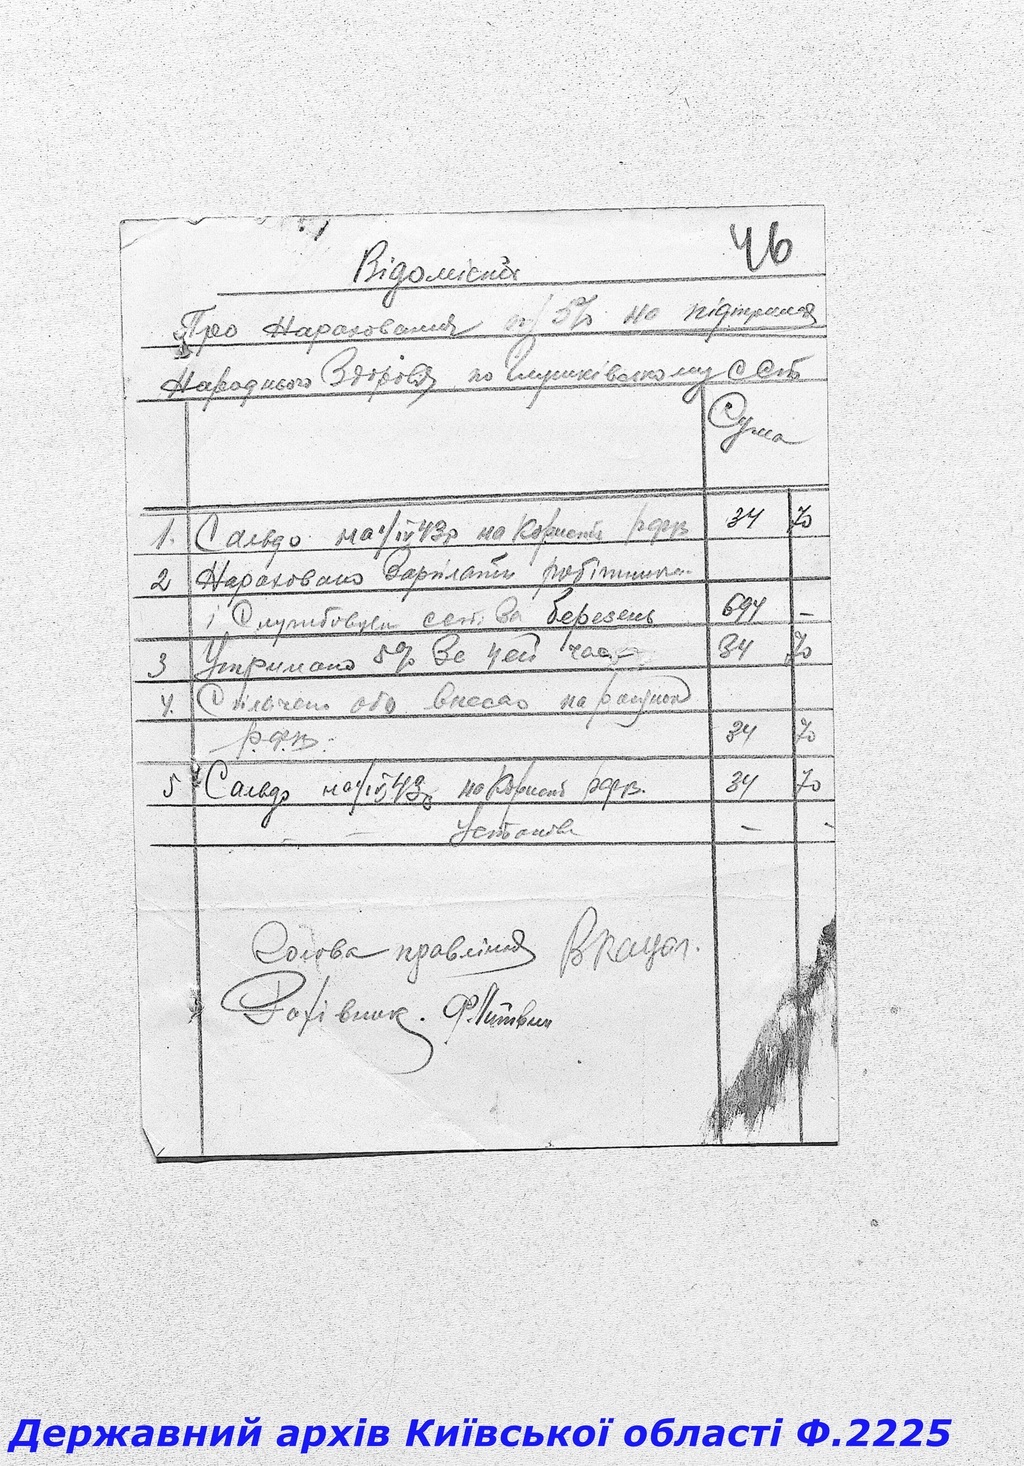 46
Відомість
Про Нарахования 5% на підтримання
Народнього Здоровя по ССТ
Сума
1. Сальдо на 1/IV 43р на Користь РФВ 34 70
2 Нараховано Зарплати робітникам
і Службовцям сст. За березень 694 –
3 Утримано 5% За цей час 34 70
4. Сплачено або внесено на рахунок
Р.Ф.В. 34 70
5 Сальдо на 1/IV 43р на Користь РФВ. 34 70
– – Установи – -
Голова правління
Рахівник. Ф.Литвин
Державний архів Київської області Ф.2225